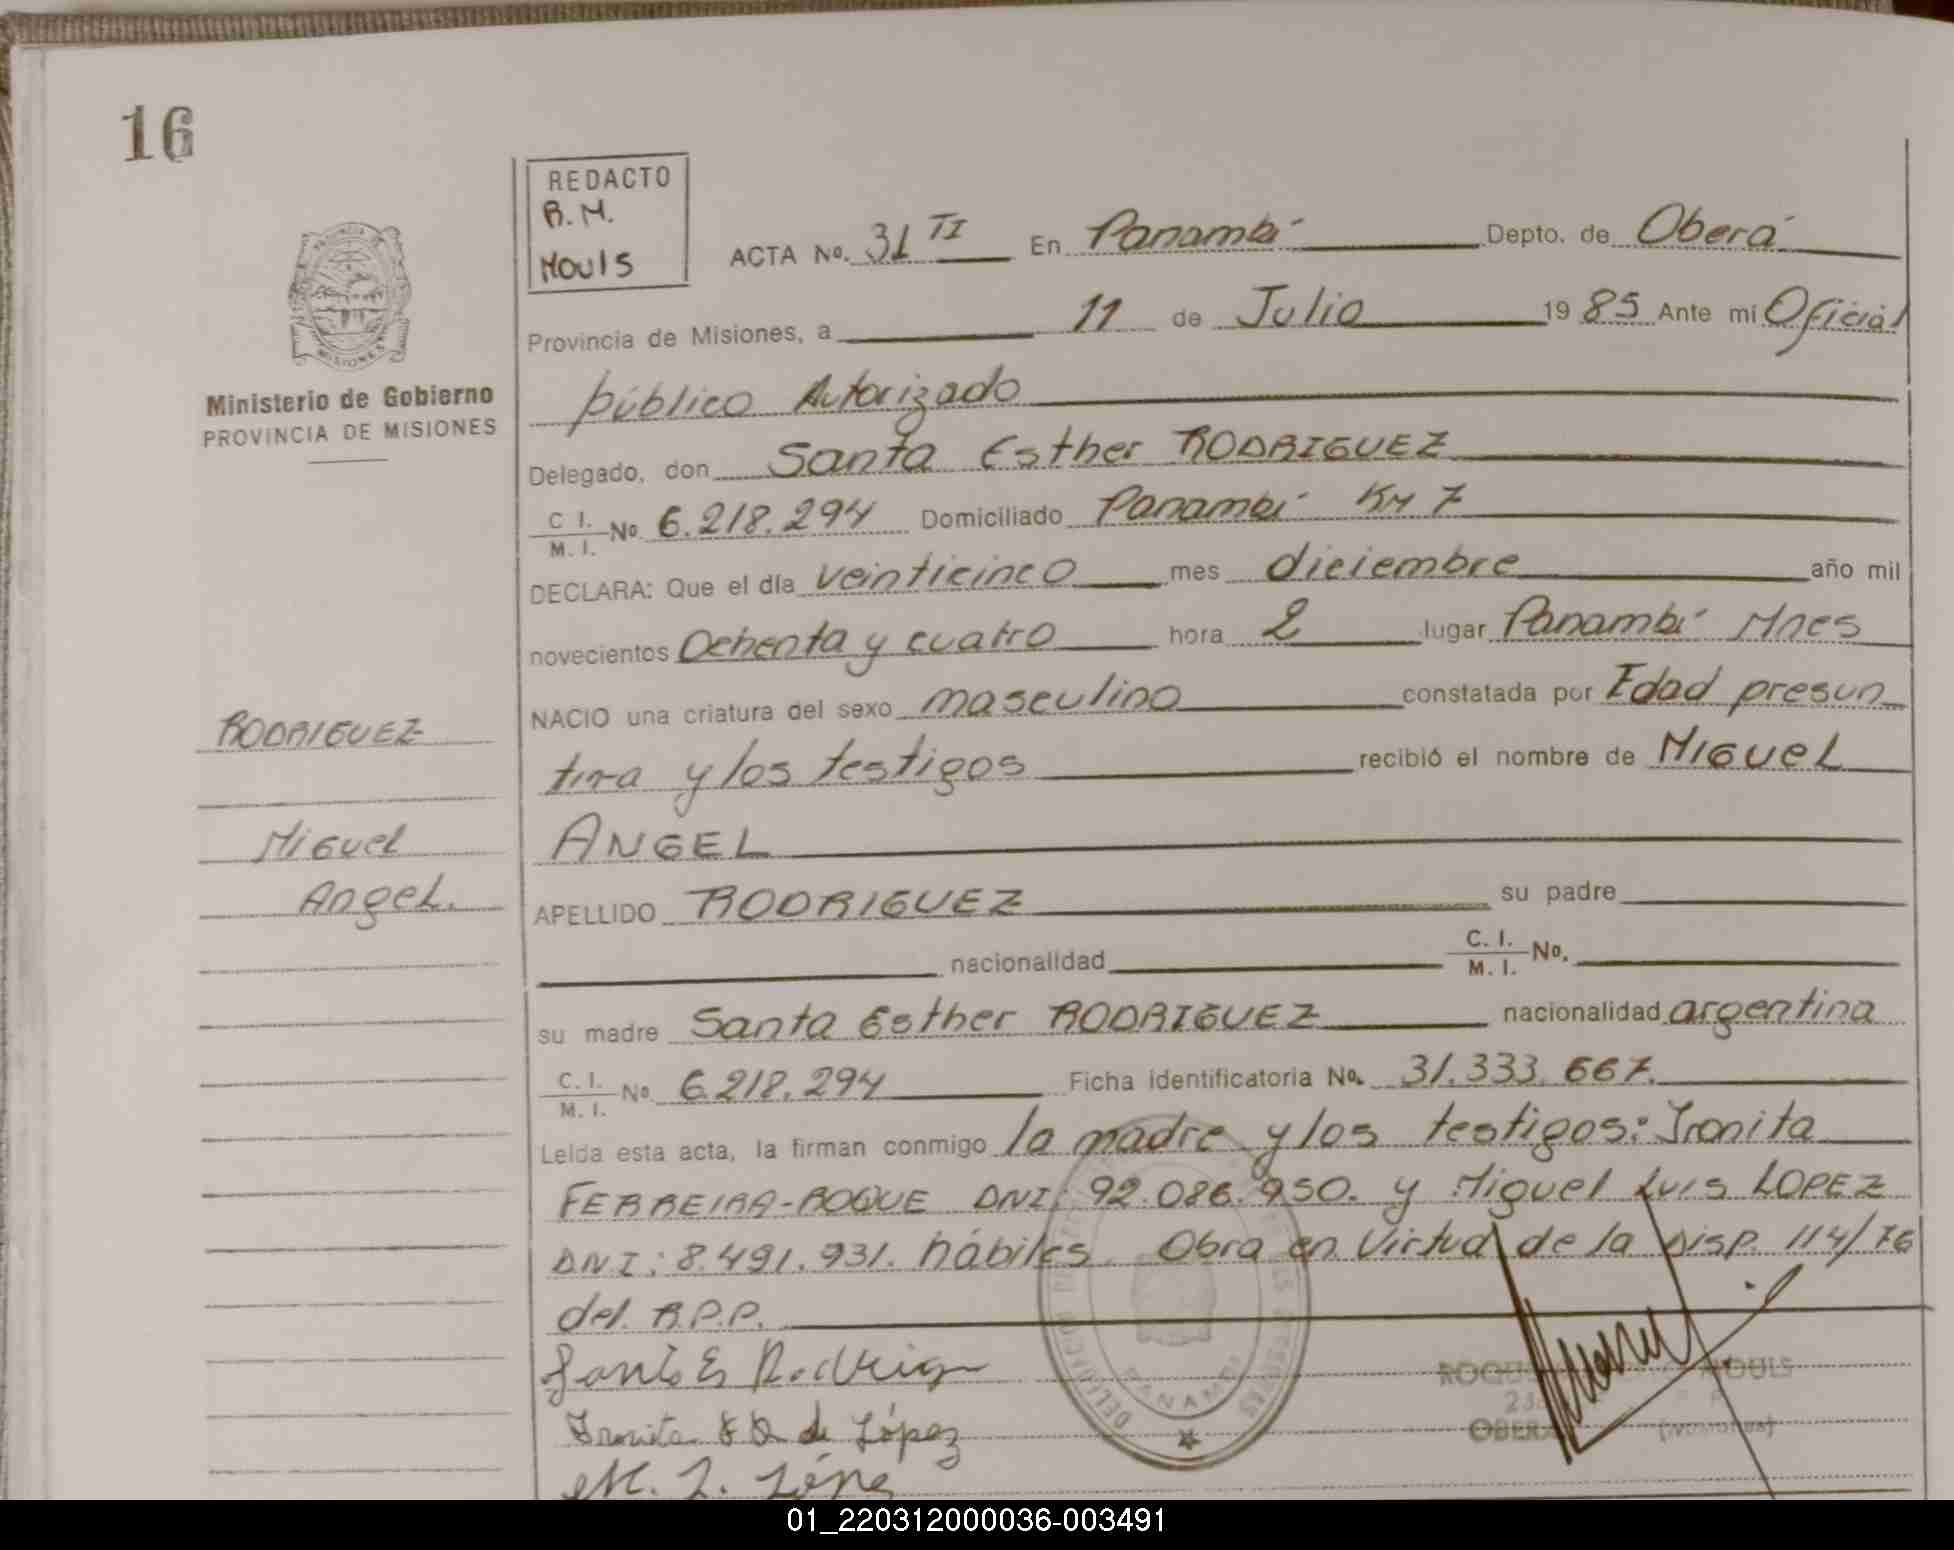 16
REDACTO
R. M.
Mouls
ACTA No. 31 TI En Panambí Depto. de Oberá
Provincia de Misiones, a 11 de Julio 1985 Ante mí Oficial
público Autorizado
Delegado, don Santa Esther RODRIGUEZ
C I. / M. I. No 6.218.294 Domiciliado Panambí Km 7
DECLARA: Que el día veinticinco mes diciembre año mil
novecientos Ochenta y cuatro hora 2 lugar Panambí Mnes
NACIO una criatura del sexo masculino constatada por Edad presun
tiva y los testigos recibió el nombre de MIGUEL
ANGEL
APELLIDO RODRIGUEZ su padre
nacionalidad C. I. / M. I. No.
su madre Santa Esther RODRIGUEZ nacionalidad argentina
C. I. / M. I. No. 6.218.294 Ficha identificatoria No. 31.333.667.
Leída esta acta, la firman conmigo la madre y los testigos: Ironita
FERREIRA-ROQUE DNI: 92.086.950. y Miguel Luis LOPEZ
DNI: 8.491.931. hábiles. Obra en Virtud de la Disp. 114/76
del R.P.P.
Ministerio de Gobierno
PROVINCIA DE MISIONES
RODRIGUEZ
Miguel
Angel.
PROVINCIA DE
MISIONES
Santa E Rodrig
Ironita F R de López
M. L. Lópe
PANAMBI
ROQUE MOULS
OBERA (MISIONES)
01_220312000036-003491